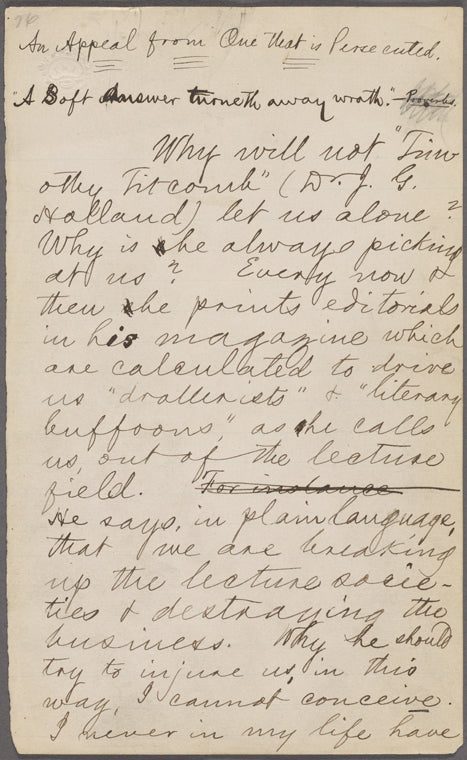 An Appeal from One that is Persecuted.
"A Soft Answer turneth away wrath." — Proverbs.
Why will not "Tim-
othy Titcomb" (Dr. J. G.
Holland) let us alone?
Why is he always picking
at us? Every now &
then he prints editorials
in his magazine which
are calculated to drive
us "drollerists" & "literary
buffoons," as he calls
us, out of the lecture
field. For instance
He says, in plain language,
that we are breaking
up the lecture socie-
ties & destroying the
business. Why he should
try to injure us, in this
way, I cannot conceive.
I never in my life have